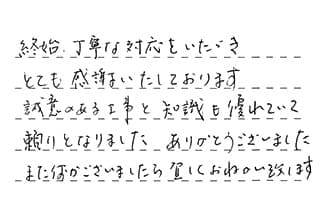 終始、丁寧な対応をいただき
とても感謝をいたしております
誠意のある工事と知識も優れていて
頼りとなりました ありがとうございました
また何かございましたら宜しくおねがい致します